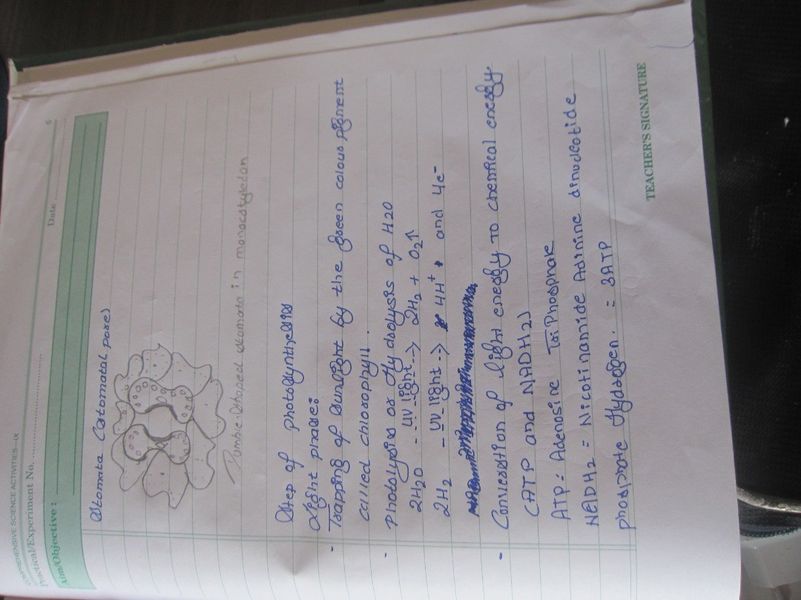 COMPREHENSIVE SCIENCE ACTIVITIES—IX
Practical/Experiment No. ............
Date ............ 6
Aim/Objective :
Stomata (stomatal pore)
Dumble shaped stomata in monocotyledon
Step of photosynthesis
Light phase:
- Trapping of sunlight by the green colour pigment
called chlorophyll.
- Photolysis or Hydrolysis of H2O
2H2O --UV light--> 2H2 + O2↑
2H2 --UV light--> 4H+ and 4e-
- Convertion of light energy to chemical energy
(ATP and NADH2)
ATP= Adenosine TriPhosphate
NADH2 = Nicotinamide Adinine dinucleotide
phosphate Hydrogen. = 3ATP
TEACHER'S SIGNATURE